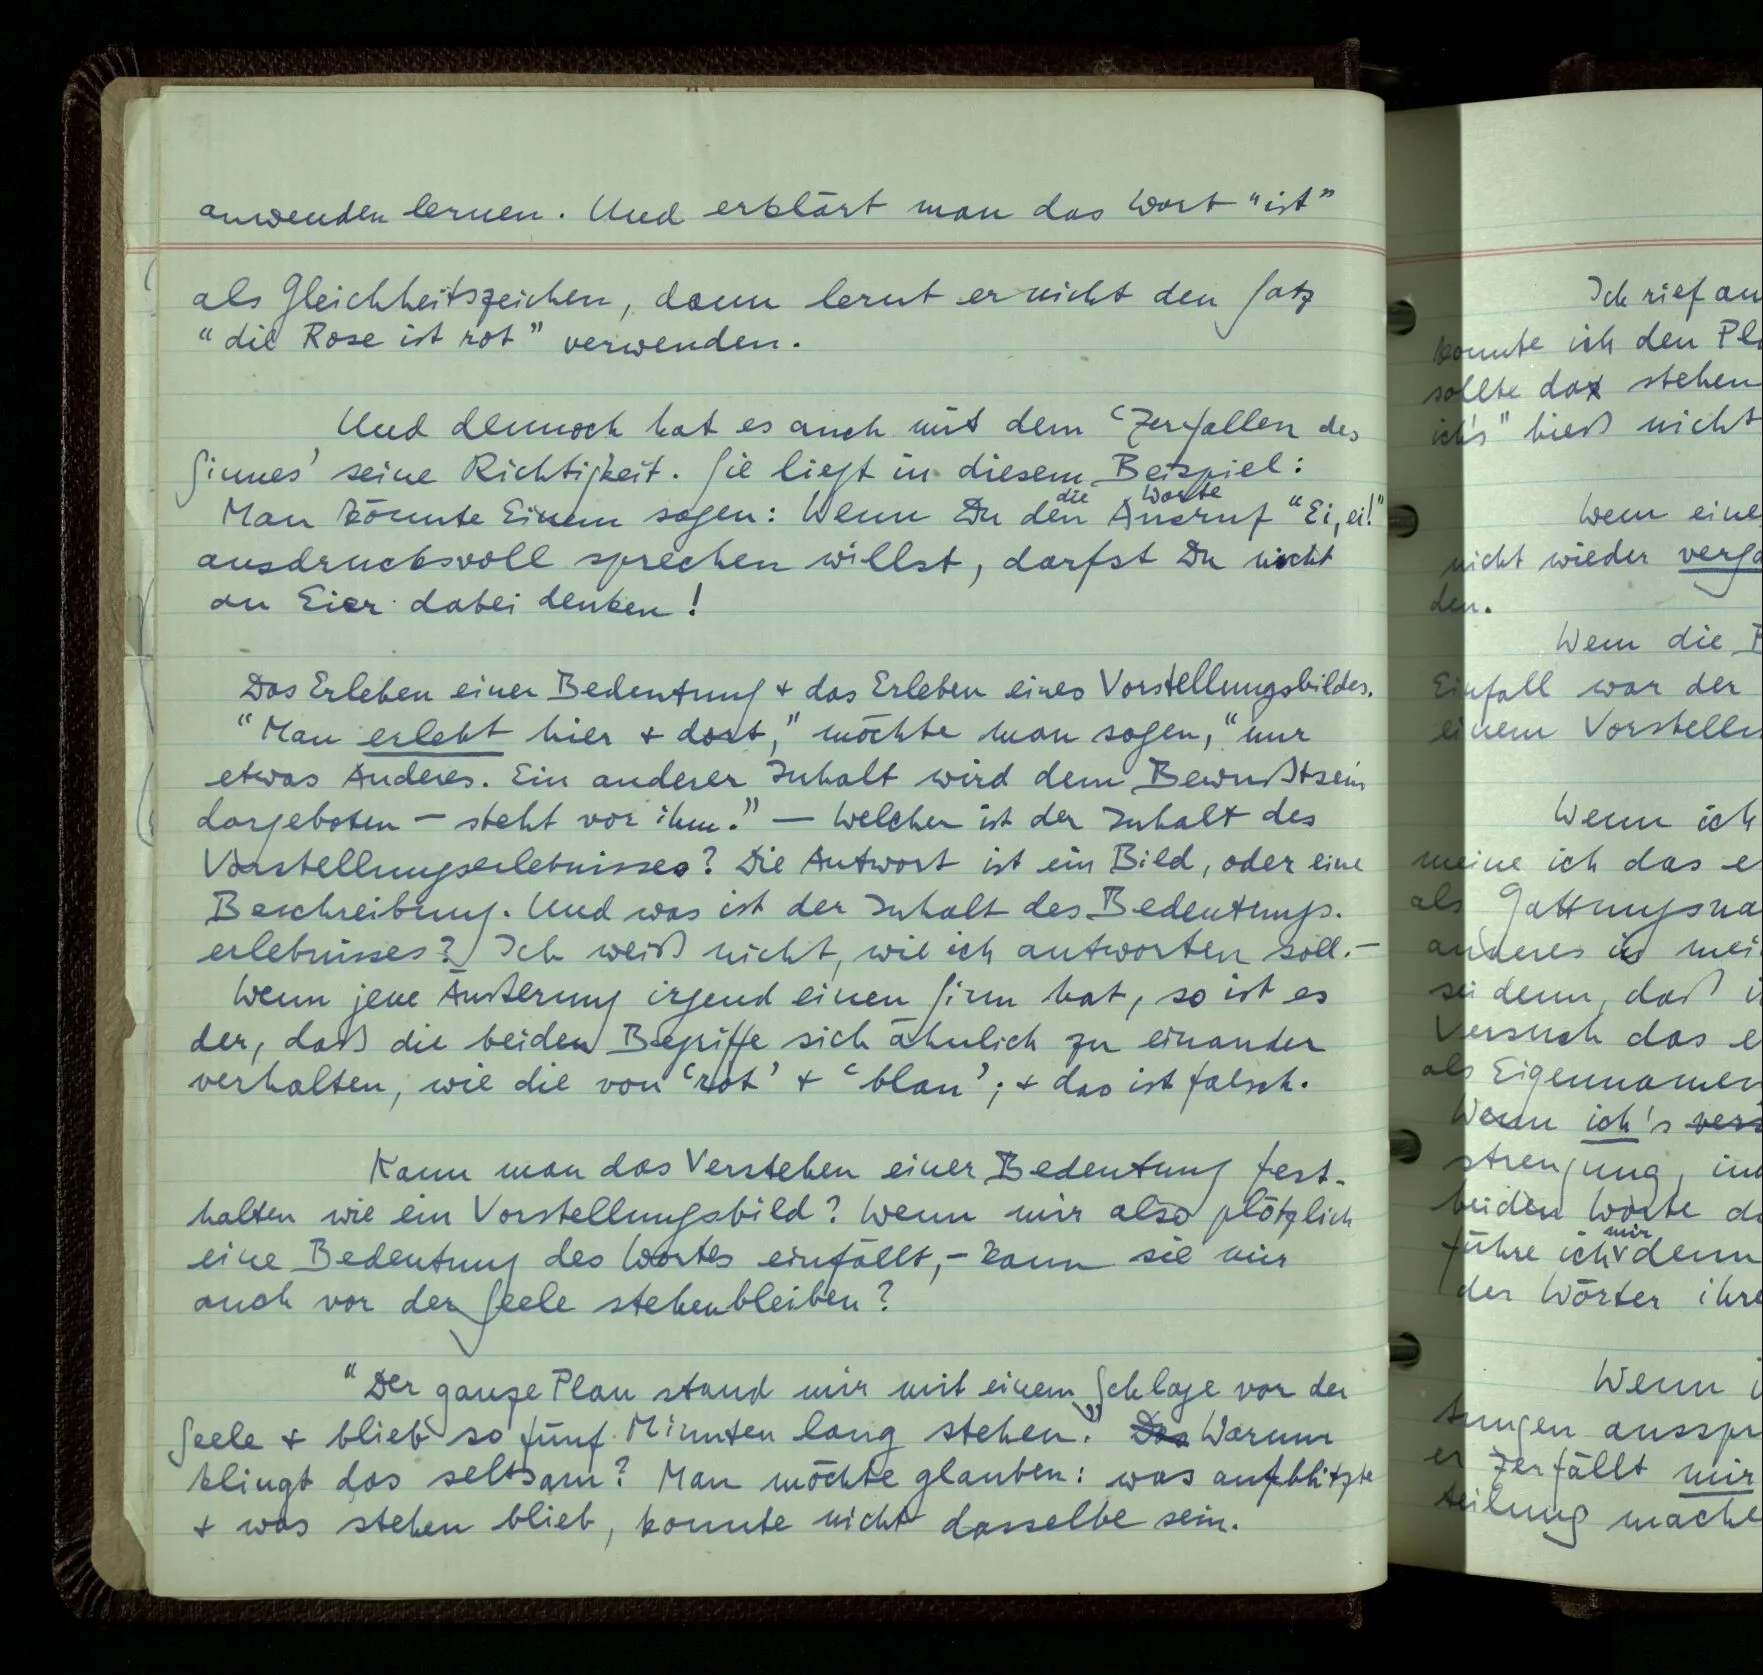 anwenden lernen. Und erklärt man das Wort "ist"
als Gleichheitszeichen, dann lernt er nicht den Satz
"die Rose ist rot" verwenden.
Und dennoch hat es auch mit dem 'Zerfallen des
Sinnes' seine Richtigkeit. Sie liegt in diesem Beispiel:
die Worte
Man könnte Einem sagen: Wenn Du den Ausruf "Ei, ei!"
ausdrucksvoll sprechen willst, darfst Du nicht
an Eier dabei denken!
Das Erleben einer Bedeutung + das Erleben eines Vorstellungsbildes.
"Man erlebt hier + dort," möchte man sagen, "nur
etwas Anderes. Ein anderer Inhalt wird dem Bewußtsein
dargeboten – steht vor ihm." — Welcher ist der Inhalt des
Vorstellungserlebnisses? Die Antwort ist ein Bild, oder eine
Beschreibung. Und was ist der Inhalt des Bedeutungs-
erlebnisses? Ich weiß nicht, wie ich antworten soll. –
Wenn jene Äußerung irgend einen Sinn hat, so ist es
der, daß die beiden Begriffe sich ähnlich zu einander
verhalten, wie die von 'rot' + 'blau'; + das ist falsch.
Kann man das Verstehen einer Bedeutung fest-
halten wie ein Vorstellungsbild? Wenn mir also plötzlich
eine Bedeutung des Wortes einfällt, – kann sie mir
auch vor der Seele stehenbleiben?
"Der ganze Plan stand mir mit einem Schlage vor der
Seele + blieb so fünf Minuten lang stehen." Das Warum
klingt das seltsam? Man möchte glauben: was aufblitzte
+ was stehen blieb, konnte nicht dasselbe sein.
Ich rief au
konnte ich den Pl
sollte das stehen
ich's" hieß nicht
Wem eine
nicht wieder verg
den.
Wem die
Einfall war der
einem Vorstellu
Wenn ich
meine ich das e
als Gattungsna
anderes in mei
sei denn, daß
Versuch das e
als Eigennamen
Wenn ich's
strengung, in
beiden Worte d
mir
führe ich denn
der Wörter ihre
Wenn
tungen ausspr
er zerfällt mir
teilung mache